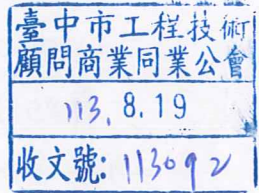 臺中市工程技術
顧問商業同業公會
113.8.19
收文號:113092